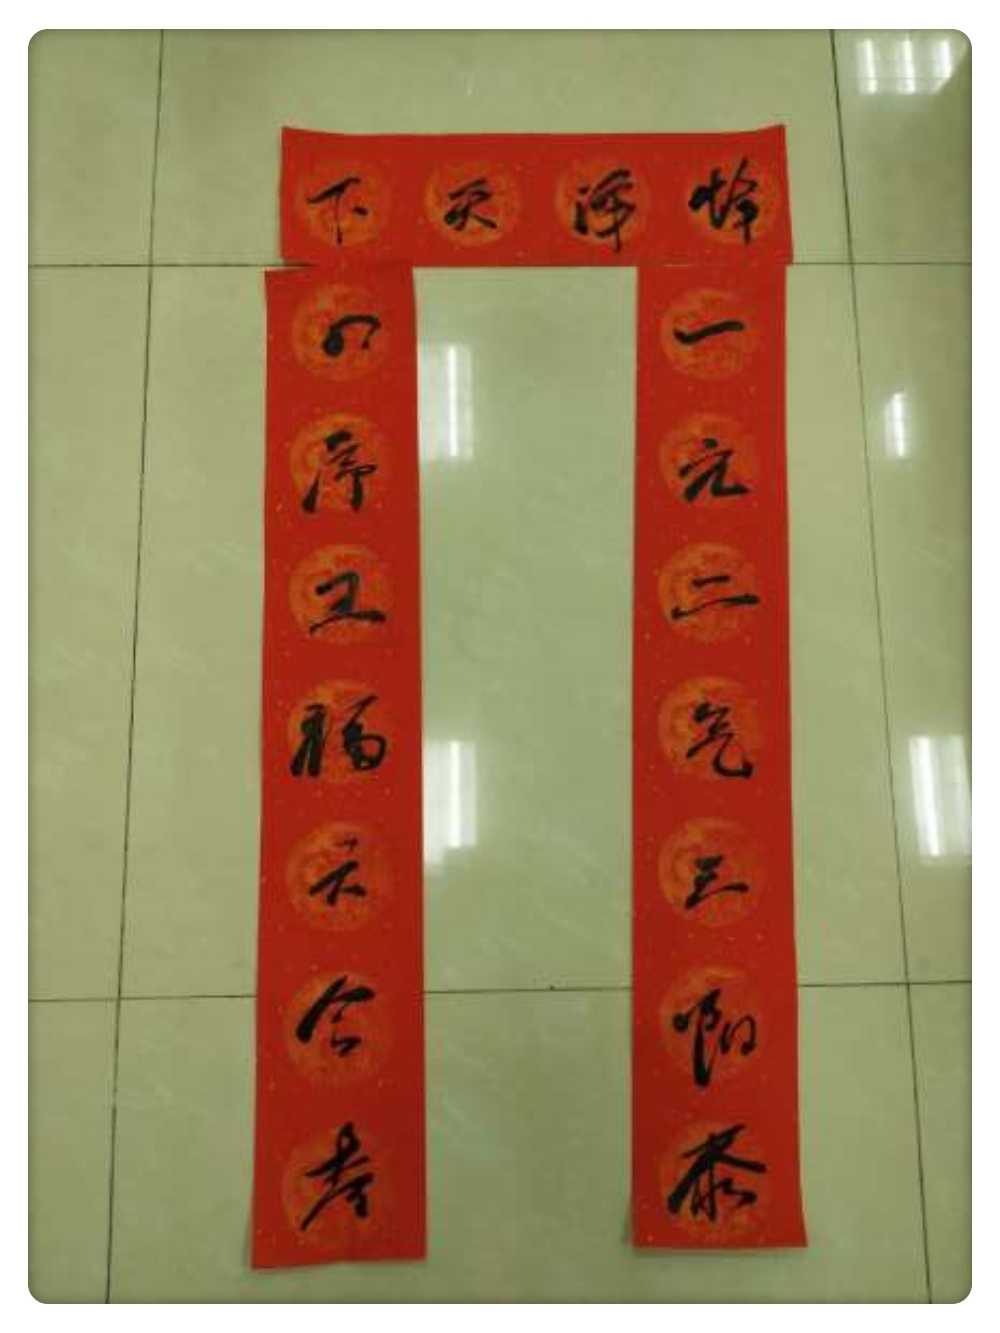 泽天下
一元二气三阳泰
四序五福六合春